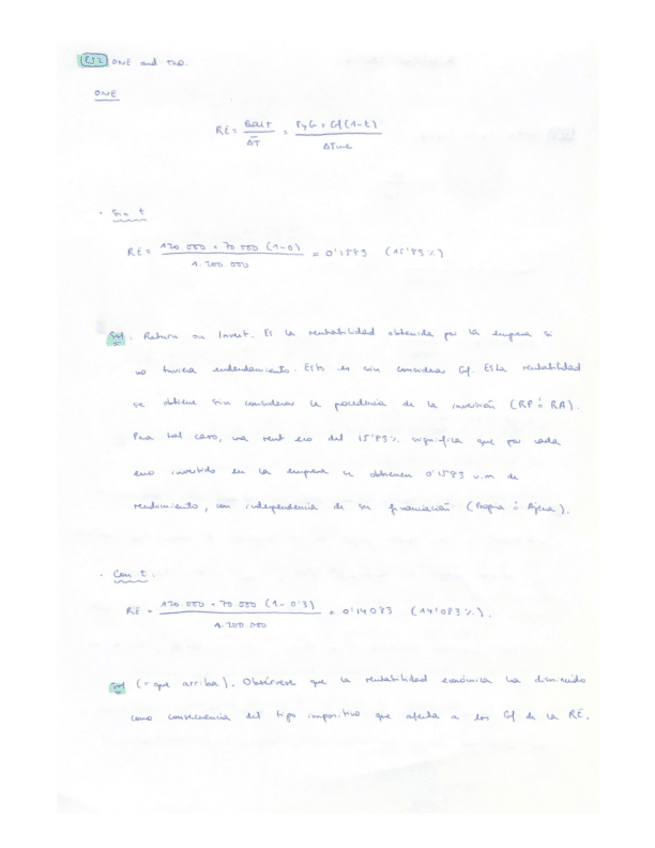 ONE and TWO.
ONE
RE = BAIT / AT = PyG + Gf (1-t) / AT
· Sin t
RE = 120.000 + 70.000 (1-0) / 1.200.000 = 0'1583 (15'83%)
Return on Invest. Es la rentabilidad obtenida por la empresa si
no tuviera endeudamiento. Esto es sin considerar Gf. Esta rentabilidad
se obtiene sin considerar la procedencia de la inversión (RP ó RA).
Para tal caso, una rent eco del 15'83% significa que por cada
euro invertido en la empresa se obtienen 0'1583 u.m de
rendimiento, con independencia de su financiación (Propia ó Ajena).
· Con t.
RE = 120.000 + 70.000 (1-0'3) / 1.200.000 = 0'14083 (14'083%).
(= que arriba). Obsérvese que la rentabilidad económica ha disminuido
como consecuencia del tipo impositivo que afecta a los Gf de la RE.